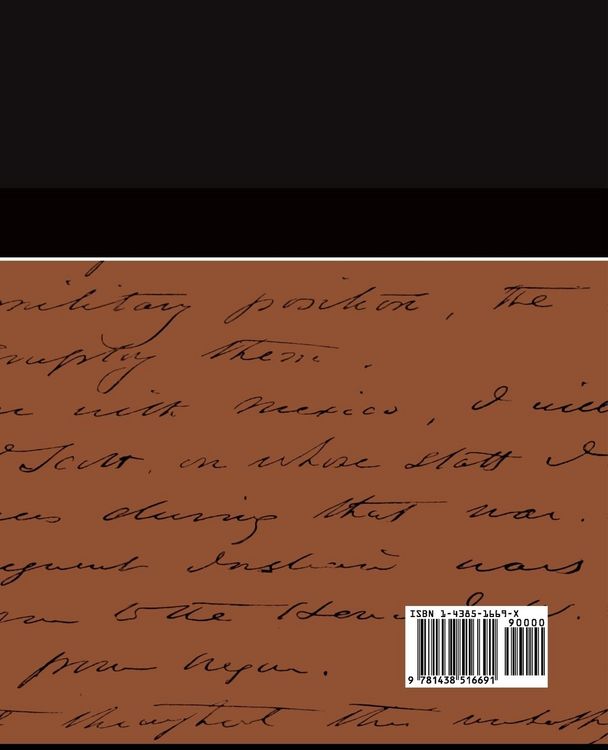 military position, the
employ them.
with Mexico, I will
Scott, on whose staff I
during that war.
wars
to the
from
throughout this
ISBN 1-4385-1669-X
90000
9 781438 516691